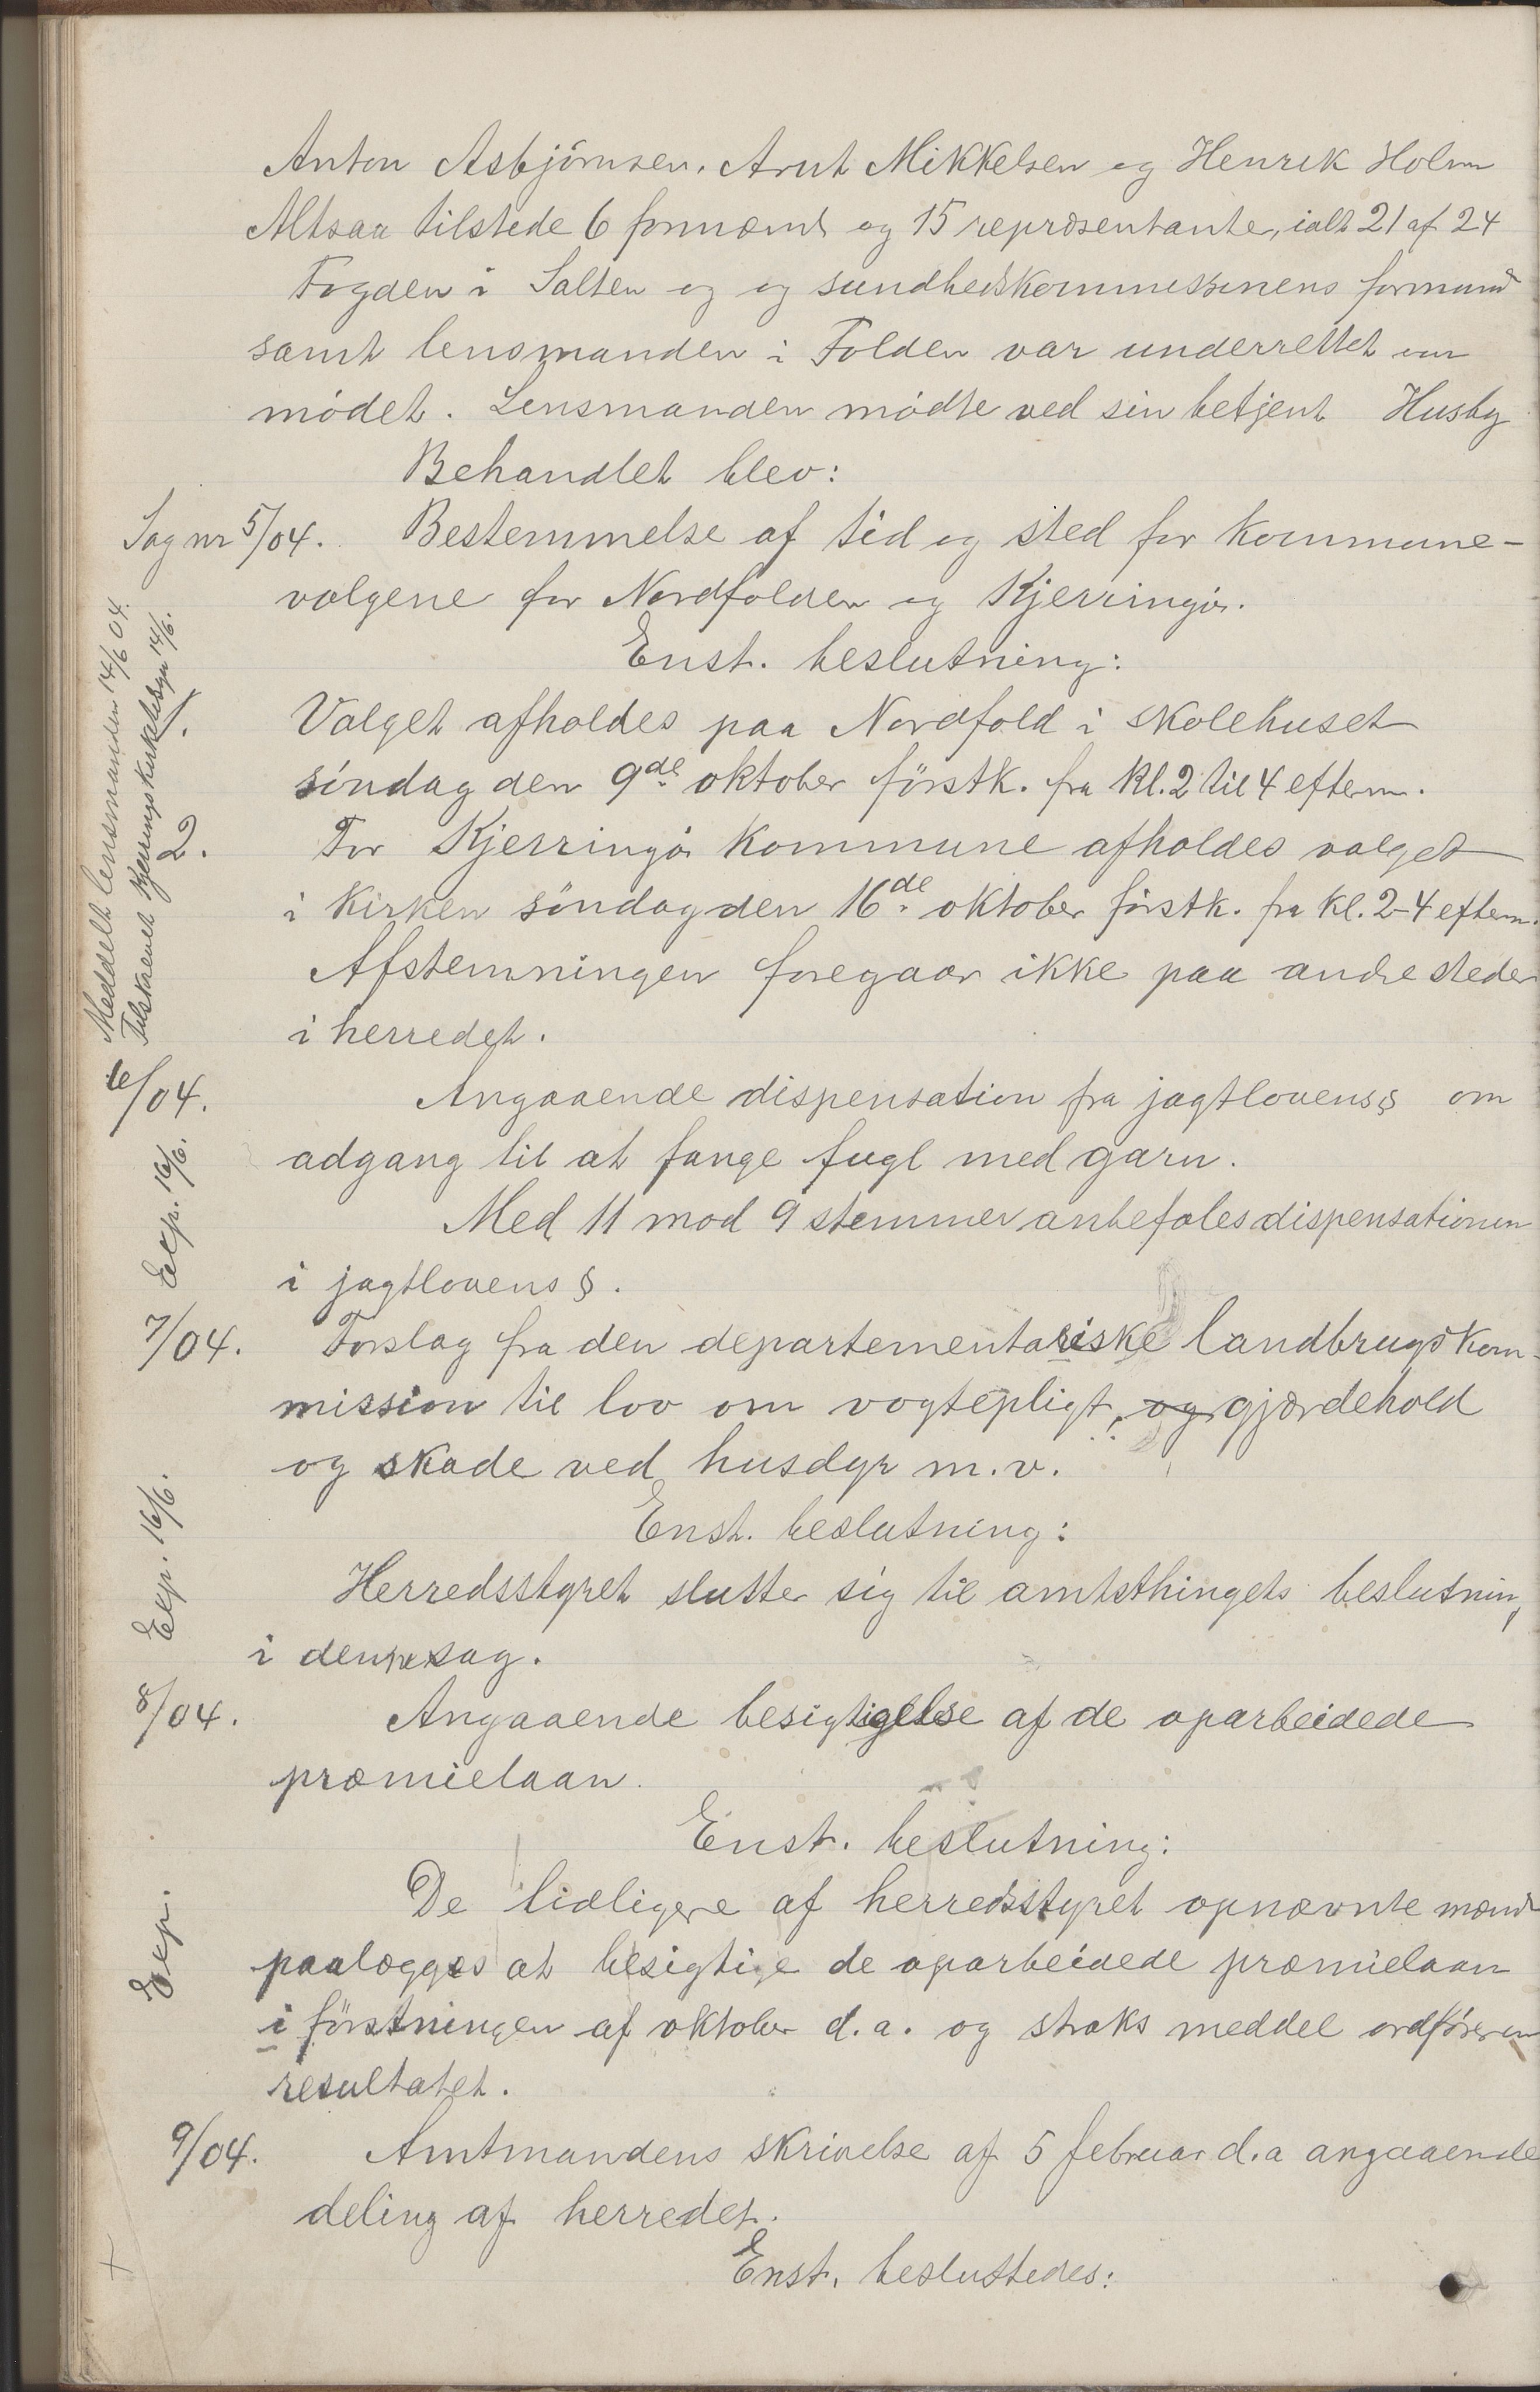 Anton Asbjørnsen. Arnt Mikkelsen og Henrik Holm
Altsaa tilstede 6 formænd og 15 repræsentanter, ialt 21 af 24
Fogden i Salten og og sundhedskommissinens formand
samt lensmanden i Folden var underrettet om
mödet. Lensmanden mödte ved sin betjent Husby
Behandlet blev:
Sag nr 5/04. Bestemmelse af tid og sted for kommune-
valgene for Nordfolden og Kjerringö.
Enst. beslutning:
Meddelt lensmanden 14/6 04.
Tilskrevet Kjerringö Kirketilsyn 14/6.
1. Valget afholdes paa Nordfold i skolehuset
söndag den 9de oktober förstk. fra kl. 2 til 4 efterm.
2. For Kjerringö kommune afholdes valget
i kirken söndag den 16de oktober förstk. fra kl. 2-4 efterm.
Afstemningen foregaar ikke paa andre steder
i herredet.
6/04. Angaaende dispensation fra jagtlovens § om
adgang til at fange fugl med garn.
Exp. 16/6.
Med 11 mod 9 stemmer anbefales dispensationen
i jagtlovens §.
7/04. Forslag fra den departementariske landbrugskom-
mission til lov om vogtepligt, og gjærdehold
og skade ved husdyr m.v.
Enst. beslutning:
Exp. 16/6.
Herredsstyret slutter sig til amtsthingets beslutning
i denne sag.
8/04. Angaaende besigtigelse af de oparbeidede
præmielaan.
Enst. beslutning:
Exp.
De tidligere af herredsstyret opnævnte mænd
paalægges at besigtige de oparbeidede præmielaan
i förstningen af oktober d.a. og straks meddel ordföreren
resultatet.
9/04. Amtmandens skrivelse af 5 februar d.a angaaende
deling af herredet.
Enst. besluttedes: